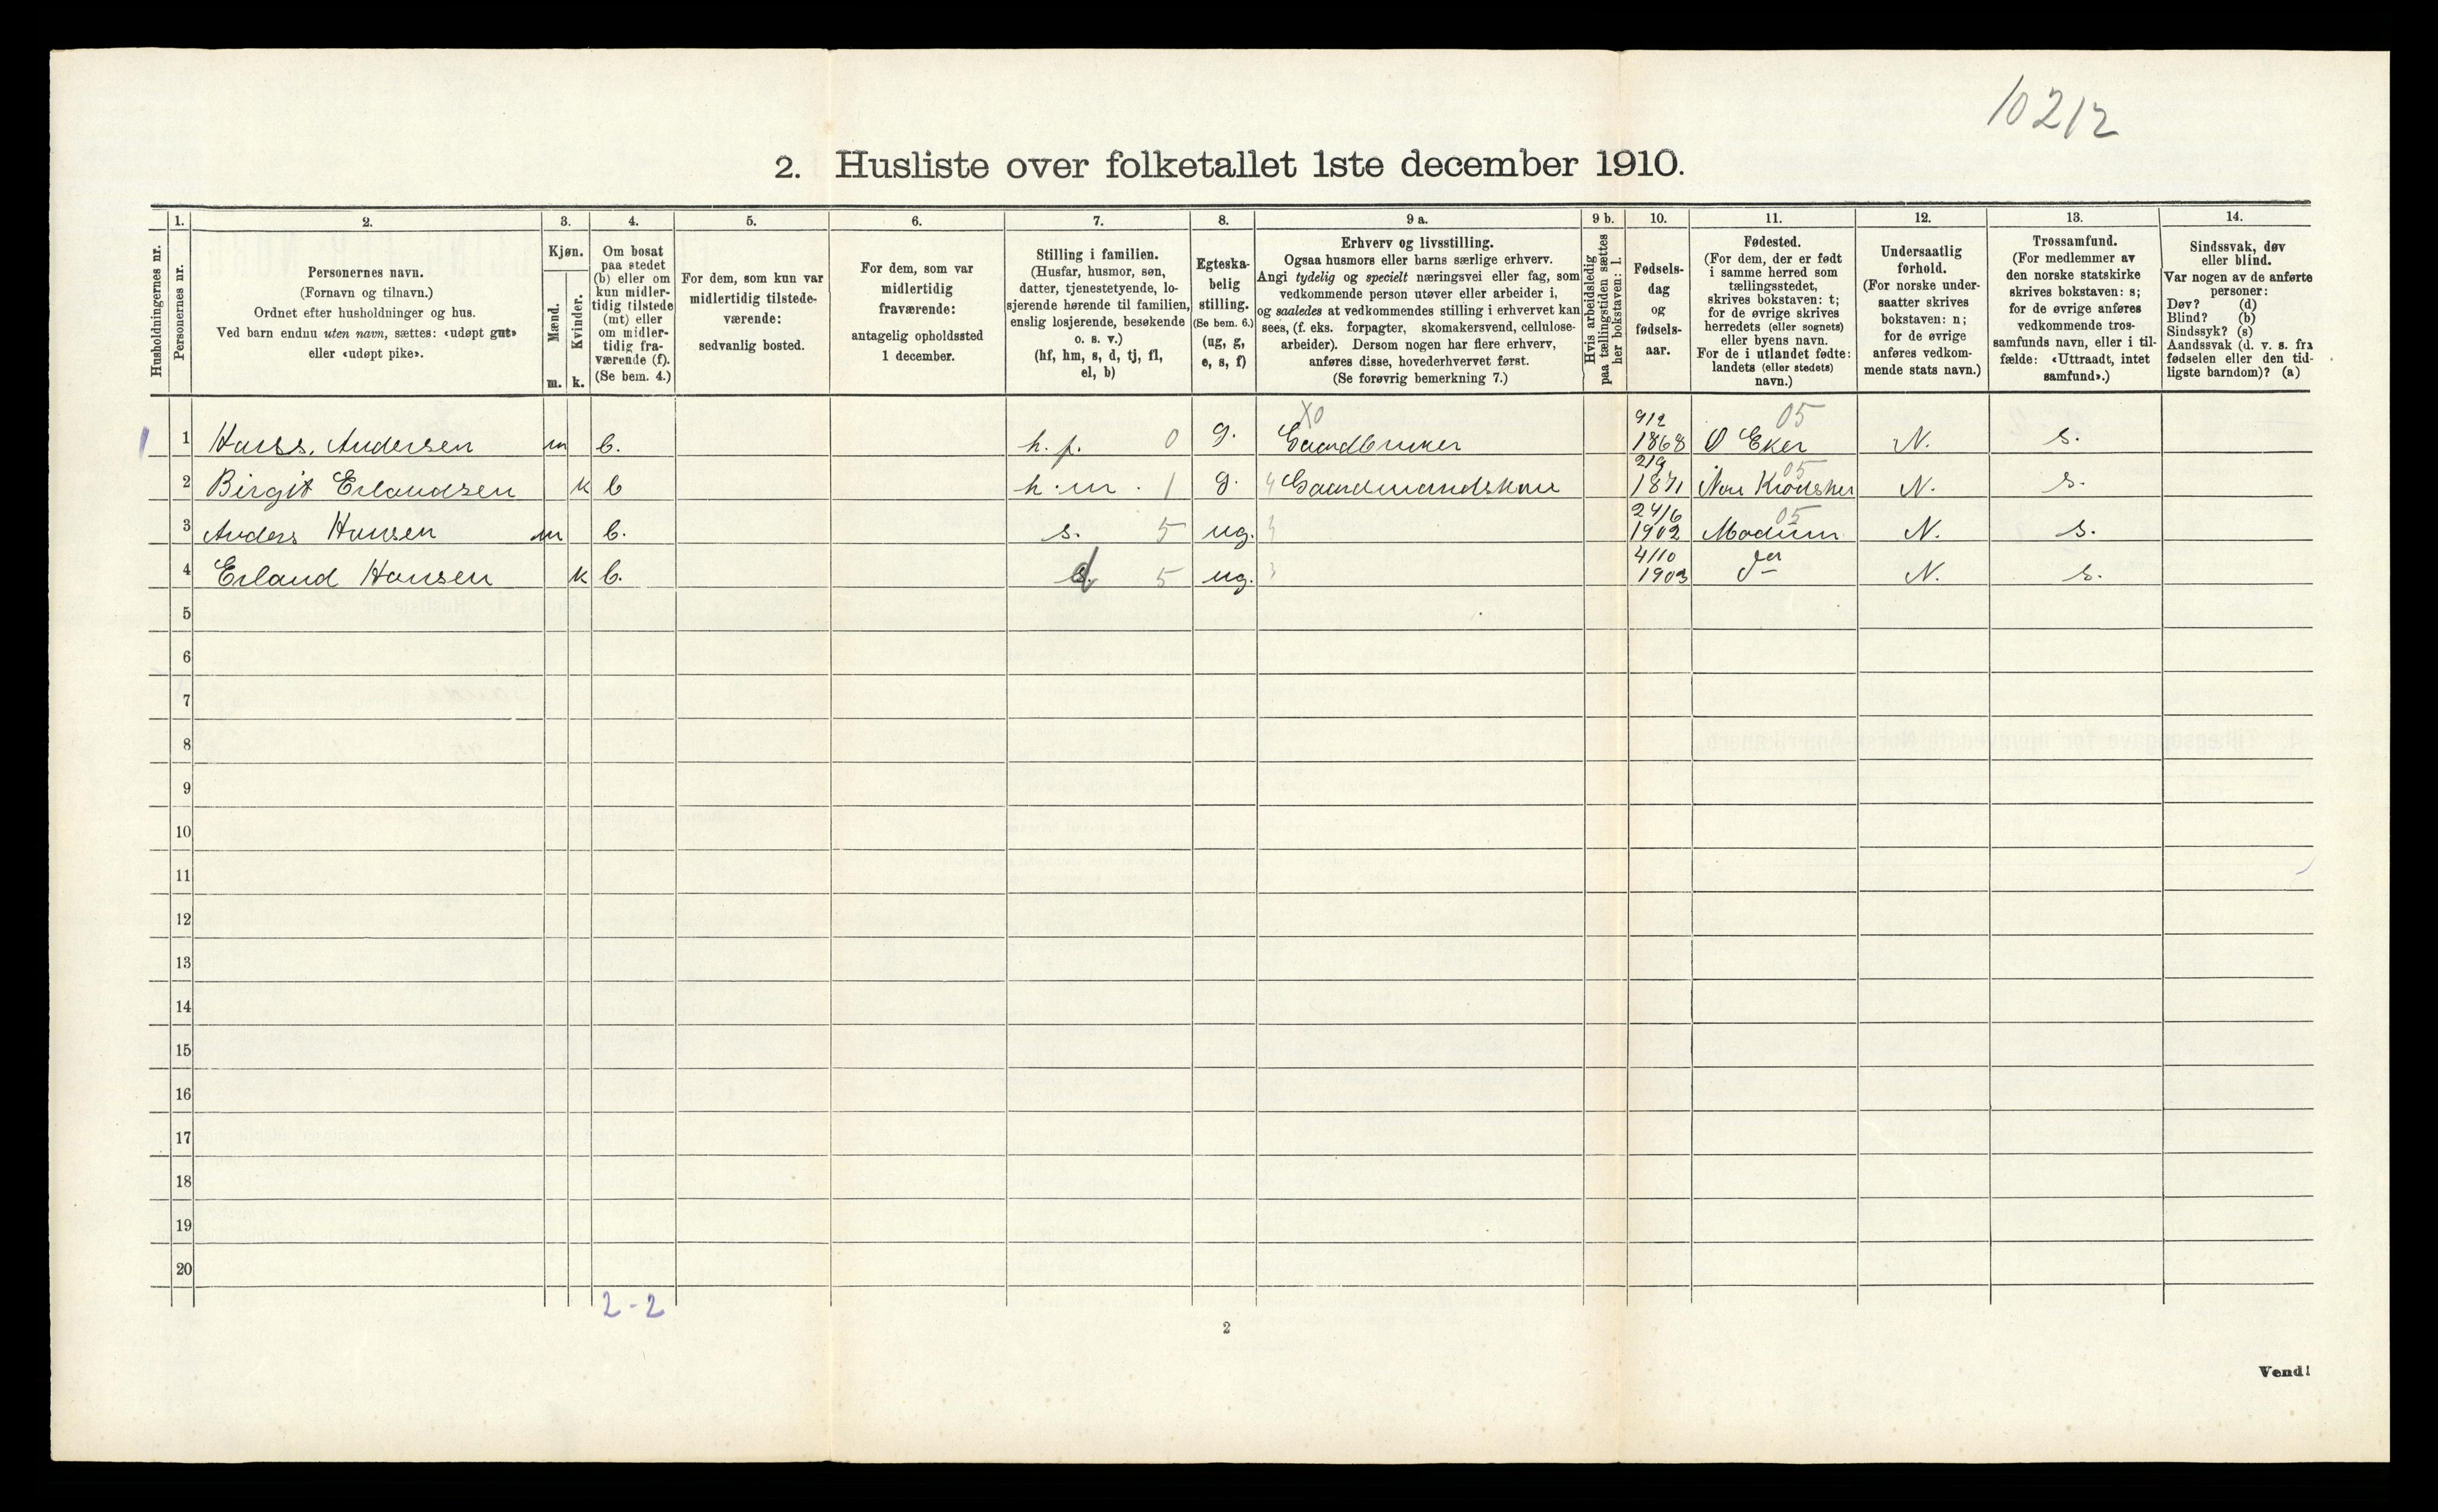 10212
2. Husliste over folketallet 1ste december 1910.
Husholdningernes nr.
1.
Personernes nr.
2.
Personernes navn.
(Fornavn og tilnavn.)
Ordnet efter husholdninger og hus.
Ved barn endnu uten navn, sættes: «udøpt gut»
eller «udøpt pike».
3.
Kjøn.
Mænd.
Kvinder.
m. k.
4.
Om bosat
paa stedet
(b) eller om
kun midler-
tidig tilstede
(mt) eller
om midler-
tidig fra-
værende (f).
(Se bem. 4.)
5.
For dem, som kun var
midlertidig tilstede-
værende:
sedvanlig bosted.
6.
For dem, som var
midlertidig
fraværende:
antagelig opholdssted
1 december.
7.
Stilling i familien.
(Husfar, husmor, søn,
datter, tjenestetyende, lo-
sjerende hørende til familien,
enslig losjerende, besøkende
o. s. v.)
(hf, hm, s, d, tj, fl,
el, b)
8.
Egteska-
belig
stilling.
(Se bem. 6.)
(ug, g,
e, s, f)
9 a.
Erhverv og livsstilling.
Ogsaa husmors eller barns særlige erhverv.
Angi tydelig og specielt næringsvei eller fag, som
vedkommende person utøver eller arbeider i,
og saaledes at vedkommendes stilling i erhvervet kan
sees, (f. eks. forpagter, skomakersvend, cellulose-
arbeider). Dersom nogen har flere erhverv,
anføres disse, hovederhvervet først.
(Se forøvrig bemerkning 7.)
9 b.
Hvis arbeidsledig
paa tællingstiden sættes
her bokstaven: l.
10.
Fødsels-
dag
og
fødsels-
aar.
11.
Fødested.
(For dem, der er født
i samme herred som
tællingsstedet,
skrives bokstaven: t;
for de øvrige skrives
herredets (eller sognets)
eller byens navn.
For de i utlandet fødte:
landets (eller stedets)
navn.)
12.
Undersaatlig
forhold.
(For norske under-
saatter skrives
bokstaven: n;
for de øvrige
anføres vedkom-
mende stats navn.)
13.
Trossamfund.
(For medlemmer av
den norske statskirke
skrives bokstaven: s;
for de øvrige anføres
vedkommende tros-
samfunds navn, eller i til-
fælde: «Uttraadt, intet
samfund».)
14.
Sindssvak, døv
eller blind.
Var nogen av de anførte
personer:
Døv? (d)
Blind? (b)
Sindssyk? (s)
Aandssvak (d. v. s. fra
fødselen eller den tid-
ligste barndom)? (a)
X0 9/2 05
1 1 Hans. Andersen m b. h. f. 0 g. Gaardbruker 1868 Ø Eker N. s.
2/9 05
2 Birgit Erlandsen k b h.m. 1 g. 4 1871 N. s.
24/6 05
3 Anders Hansen m b. s. 5 ug. 1902 Modum N. s.
4/10
4 Erland Hansen k b. d 5 ug. 3 1903 N. s.
5
6
7
8
9
10
11
12
13
14
15
16
17
18
19
20
2-2
2
Vend!